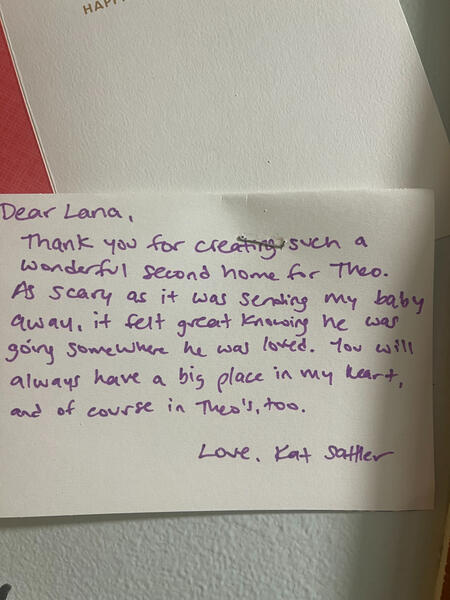 HAPP
Dear Lana,
Thank you for creating such a
wonderful second home for Theo.
As scary as it was sending my baby
away, it felt great knowing he was
going somewhere he was loved. You will
always have a big place in my heart,
and of course in Theo's, too.
Love, Kat Sattler